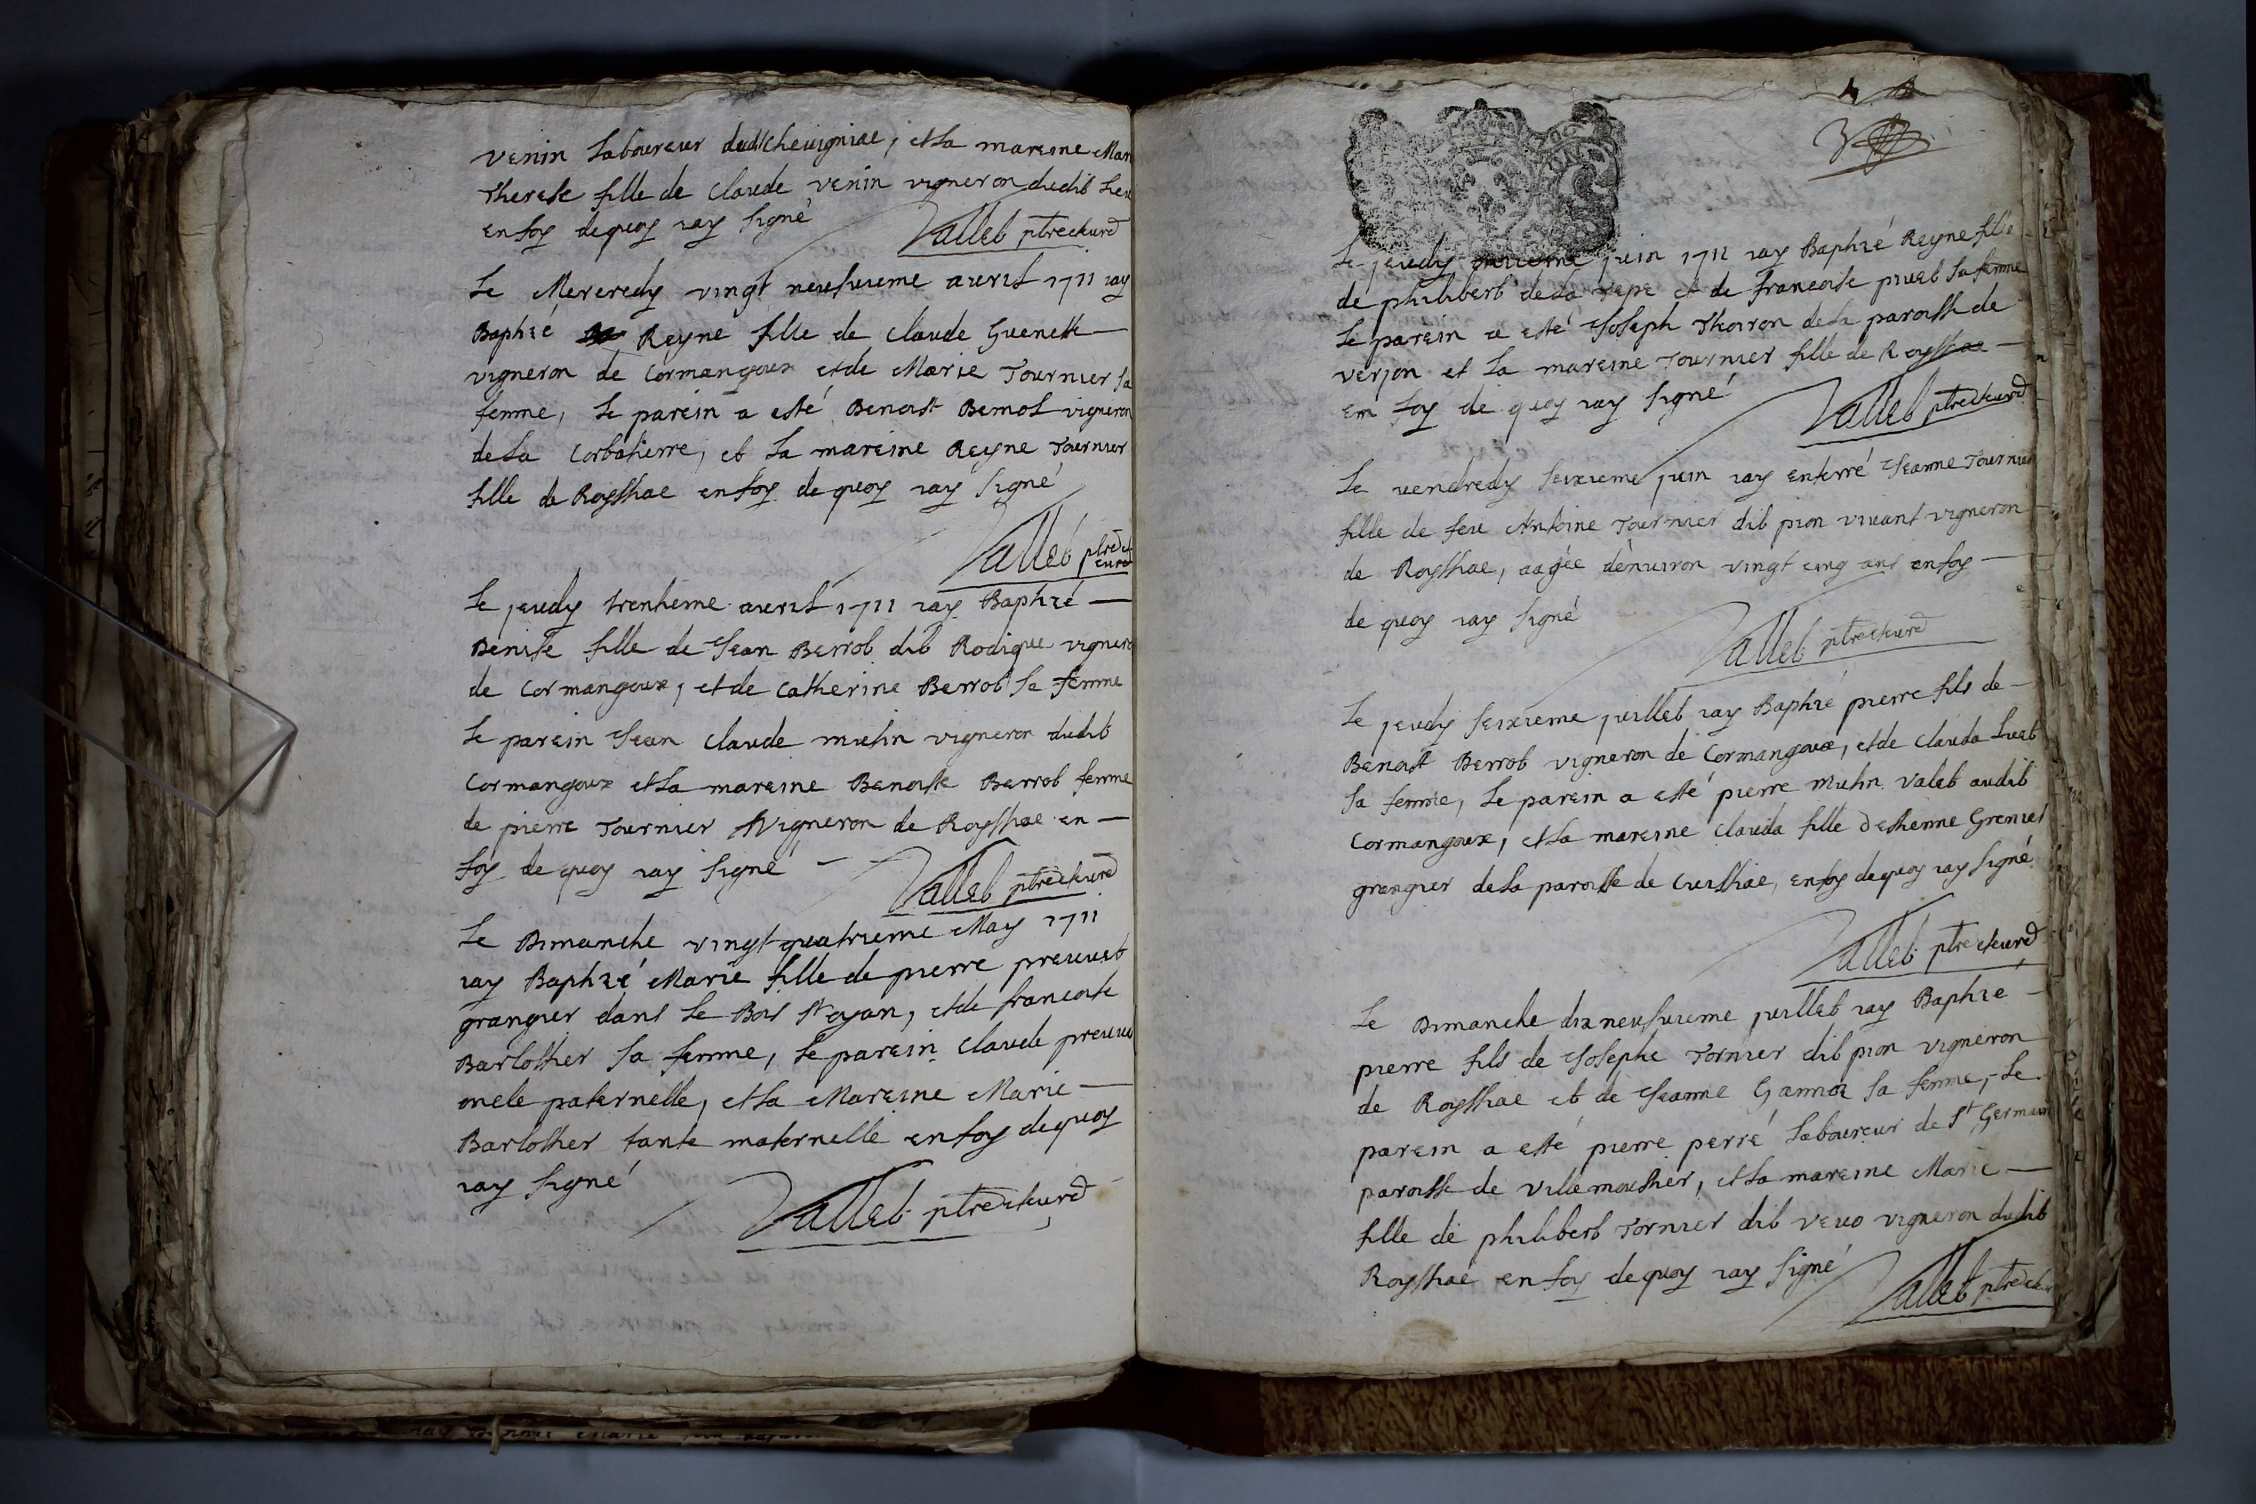 venin laboureur dudt cheuigniae, et la mareine Mari
Therese fille de claude venin vigneron dudit lieu
en foy dequoy iay signé
Vallet ptre et curé
Le Mercredy vingt neufuieme auril 1711 iay
Baptizé Reyne fille de claude Guenett
vigneron de Cormangoux et de Marie Tournier sa
femme, le parein a esté Benoist Bemol vigneron
de la Corbatierre, et la mareine Reyne Tournier
fille de Royssiae en foy de quoy iay signé
Vallet ptre et curé
Le jeudy trentieme auril 1711 iay Baptizé
Benite fille de Jean Berrob dit Rodique vignero
de Cormangoux, et de catherine Berrob sa femme
Le parein Jean claude mutin vigneron dudit
Cormangoux et la mareine Benoiste Berrob femme
de pierre Tournier vigneron de Royssiae en
foy de quoy iay signé
Vallet ptre et curé
Le Dimanche vingt quatrieme May 1711
iay Baptizé Marie fille de pierre preuuet
grangier dans le Bois St oyan, et de francoise
Barlotier sa femme, le parein claude preuue
oncle paternelle, et la Mareine Marie
Barlotier tante maternelle en foy dequoy
iay signé
Vallet ptre et curé
3
Le jeudy juin 1711 iay Baptizé Reyne fille
de philibert de la et de francoise piuet sa femme
Le parein a esté Joseph Thoiron de la paroisse de
verjon et la mareine Tournier fille de Royssiae
em foy de quoy iay signé
Vallet ptre et curé
Le vendredy seixieme juin iay enterré Jeanne Tournier
fille de feu Antoine Tournier dit pion viuant vigneron
de Royssiae, aagée denuiron vingt cinq ans en foy
de quoy iay signé
Vallet ptre et curé
Le jeudy seixieme juillet iay Baptizé pierre fils de
Benoist Berrob vigneron de Cormangoux, et de clauda Luab
sa femme, le parein a esté pierre mutin valet audit
Cormangoux, et la mareine clauda fille destienne Grenier
grangier de la paroisse de Cuissiae, en foy dequoy iay signé
Vallet ptre et curé
Le Dimanche dixneufuieme juillet iay Baptizé
pierre fils de Josephe Tornier dit pion vigneron
de Royssiae et de Jeanne Gannoz sa femme, Le
parein a esté pierre perré laboureur de St Germain
paroisse de villemoustier, et la mareine Marie
fille de philibert Tornier dit veuo vigneron dudit
Royssiae en foy dequoy iay signé
Vallet ptre et cur